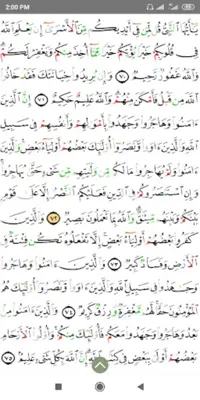 2:00 PM
يَٰٓأَيُّهَا ٱلنَّبِيُّ قُل لِّمَن فِيٓ أَيۡدِيكُم مِّنَ ٱلۡأَسۡرَىٰٓ إِن يَعۡلَمِ ٱللَّهُ
فِي قُلُوبِكُمۡ خَيۡرٗا يُؤۡتِكُمۡ خَيۡرٗا مِّمَّآ أُخِذَ مِنكُمۡ وَيَغۡفِرۡ لَكُمۡۚ
وَٱللَّهُ غَفُورٞ رَّحِيمٞ ٧٠ وَإِن يُرِيدُواْ خِيَانَتَكَ فَقَدۡ خَانُواْ
ٱللَّهَ مِن قَبۡلُ فَأَمۡكَنَ مِنۡهُمۡۗ وَٱللَّهُ عَلِيمٌ حَكِيمٌ ٧١ إِنَّ ٱلَّذِينَ
ءَامَنُواْ وَهَاجَرُواْ وَجَٰهَدُواْ بِأَمۡوَٰلِهِمۡ وَأَنفُسِهِمۡ فِي سَبِيلِ
ٱللَّهِ وَٱلَّذِينَ ءَاوَواْ وَّنَصَرُوٓاْ أُوْلَٰٓئِكَ بَعۡضُهُمۡ أَوۡلِيَآءُ بَعۡضٖۚ وَٱلَّذِينَ
ءَامَنُواْ وَلَمۡ يُهَاجِرُواْ مَا لَكُم مِّن وَلَٰيَتِهِم مِّن شَيۡءٍ حَتَّىٰ يُهَاجِرُواْۚ
وَإِنِ ٱسۡتَنصَرُوكُمۡ فِي ٱلدِّينِ فَعَلَيۡكُمُ ٱلنَّصۡرُ إِلَّا عَلَىٰ قَوۡمِۭ
بَيۡنَكُمۡ وَبَيۡنَهُم مِّيثَٰقٞۗ وَٱللَّهُ بِمَا تَعۡمَلُونَ بَصِيرٞ ٧٢ وَٱلَّذِينَ
كَفَرُواْ بَعۡضُهُمۡ أَوۡلِيَآءُ بَعۡضٍۚ إِلَّا تَفۡعَلُوهُ تَكُن فِتۡنَةٞ فِي
ٱلۡأَرۡضِ وَفَسَادٞ كَبِيرٞ ٧٣ وَٱلَّذِينَ ءَامَنُواْ وَهَاجَرُواْ
وَجَٰهَدُواْ فِي سَبِيلِ ٱللَّهِ وَٱلَّذِينَ ءَاوَواْ وَّنَصَرُوٓاْ أُوْلَٰٓئِكَ هُمُ
ٱلۡمُؤۡمِنُونَ حَقّٗاۚ لَّهُم مَّغۡفِرَةٞ وَرِزۡقٞ كَرِيمٞ ٧٤ وَٱلَّذِينَ ءَامَنُواْ مِنۢ
بَعۡدُ وَهَاجَرُواْ وَجَٰهَدُواْ مَعَكُمۡ فَأُوْلَٰٓئِكَ مِنكُمۡۚ وَأُوْلُواْ ٱلۡأَرۡحَامِ
بَعۡضُهُمۡ أَوۡلَىٰ بِبَعۡضٖ فِي كِتَٰبِ ٱللَّهِۚ إِنَّ ٱللَّهَ بِكُلِّ شَيۡءٍ عَلِيمُۢ ٧٥